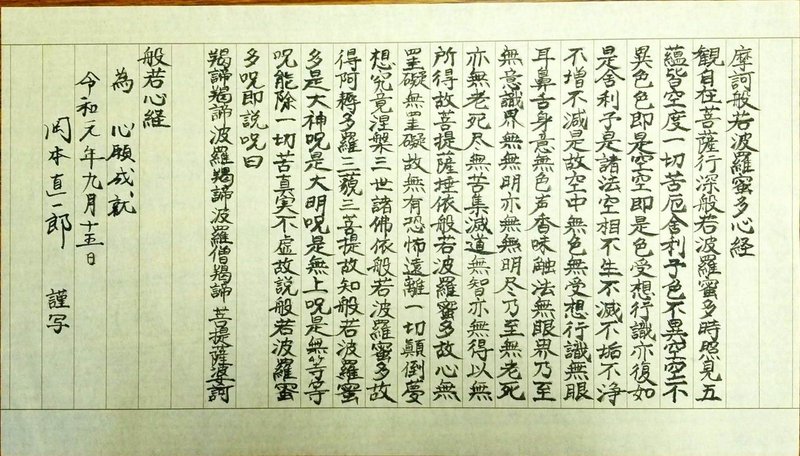 摩訶般若波羅蜜多心経
観自在菩薩行深般若波羅蜜多時照見五
蘊皆空度一切苦厄舎利子色不異空空不
異色色即是空空即是色受想行識亦復如
是舎利子是諸法空相不生不滅不垢不浄
不増不減是故空中無色無受想行識無眼
耳鼻舌身意無色声香味触法無眼界乃至
無意識界無無明亦無無明尽乃至無老死
亦無老死尽無苦集滅道無智亦無得以無
所得故菩提薩埵依般若波羅蜜多故心無
罣礙無罣礙故無有恐怖遠離一切顛倒夢
想究竟涅槃三世諸佛依般若波羅蜜多故
得阿耨多羅三藐三菩提故知般若波羅蜜
多是大神呪是大明呪是無上呪是無等等
呪能除一切苦真実不虚故説般若波羅蜜
多呪即説呪曰
羯諦羯諦波羅羯諦波羅僧羯諦 菩提薩婆訶
般若心経
為 心願成就
令和元年九月十五日
岡本直一郎 謹写